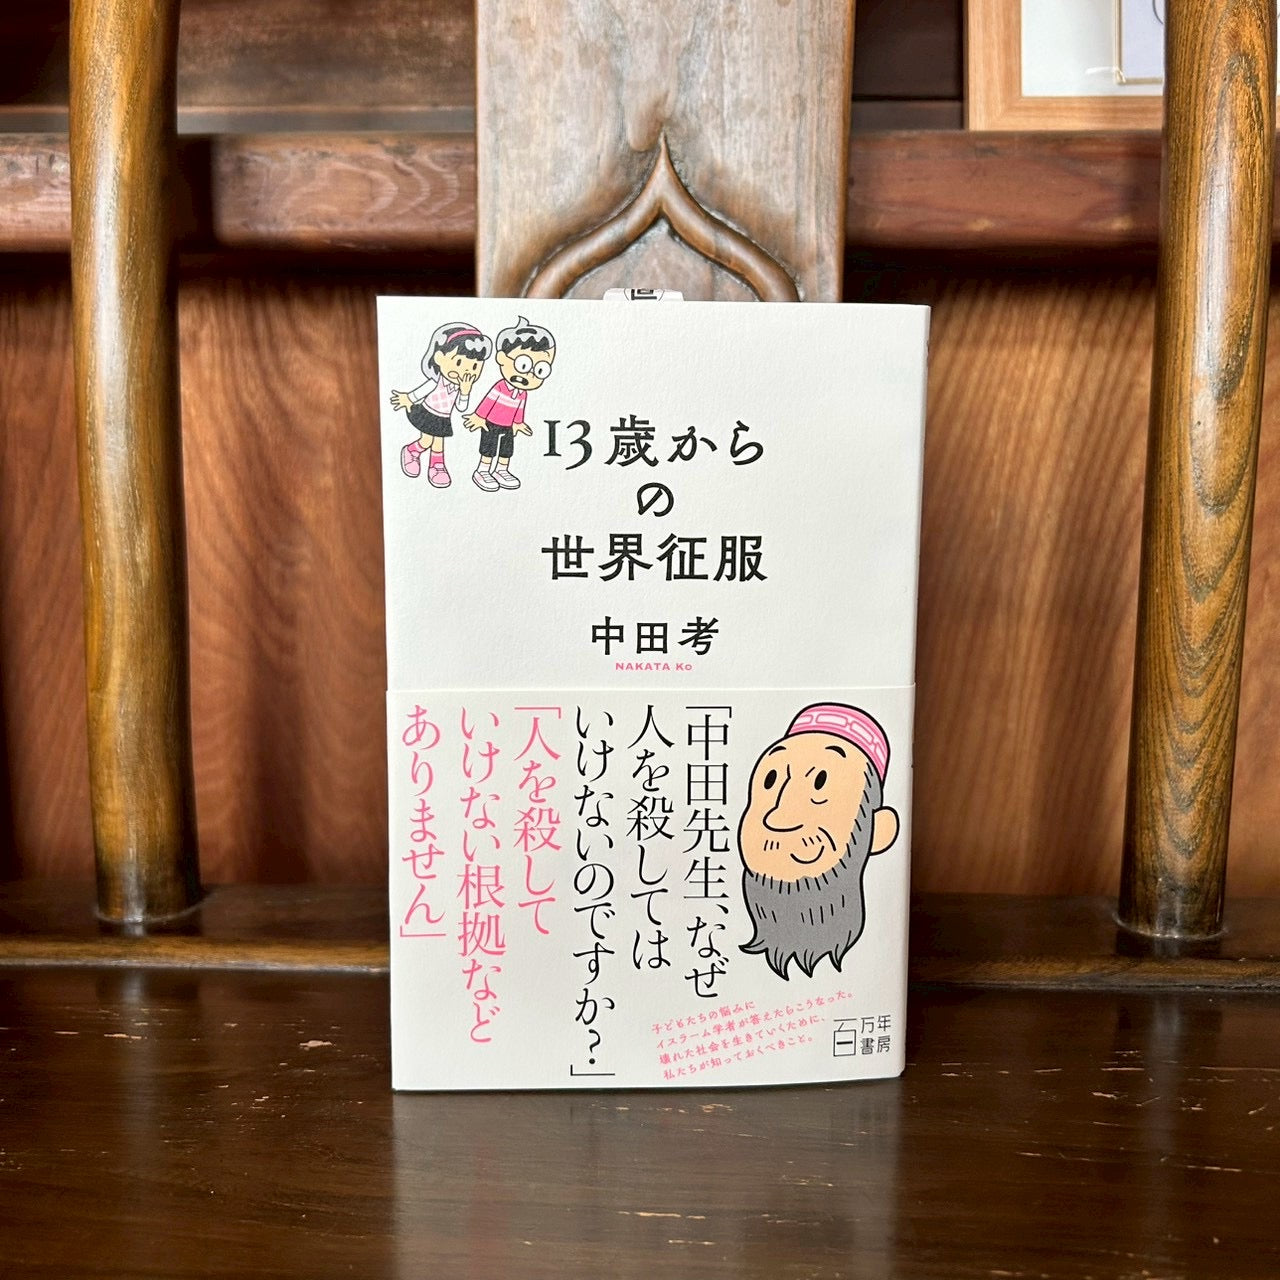 13歳から
の
世界征服
中田考
NAKATA Ko
「中田先生、なぜ
人を殺しては
いけないのですか?」
「人を殺して
いけない根拠など
ありません」
子どもたちの悩みに
イスラーム学者が答えたらこうなった。
壊れた社会を生きていくために、
私たちが知っておくべきこと。
百万年
書房